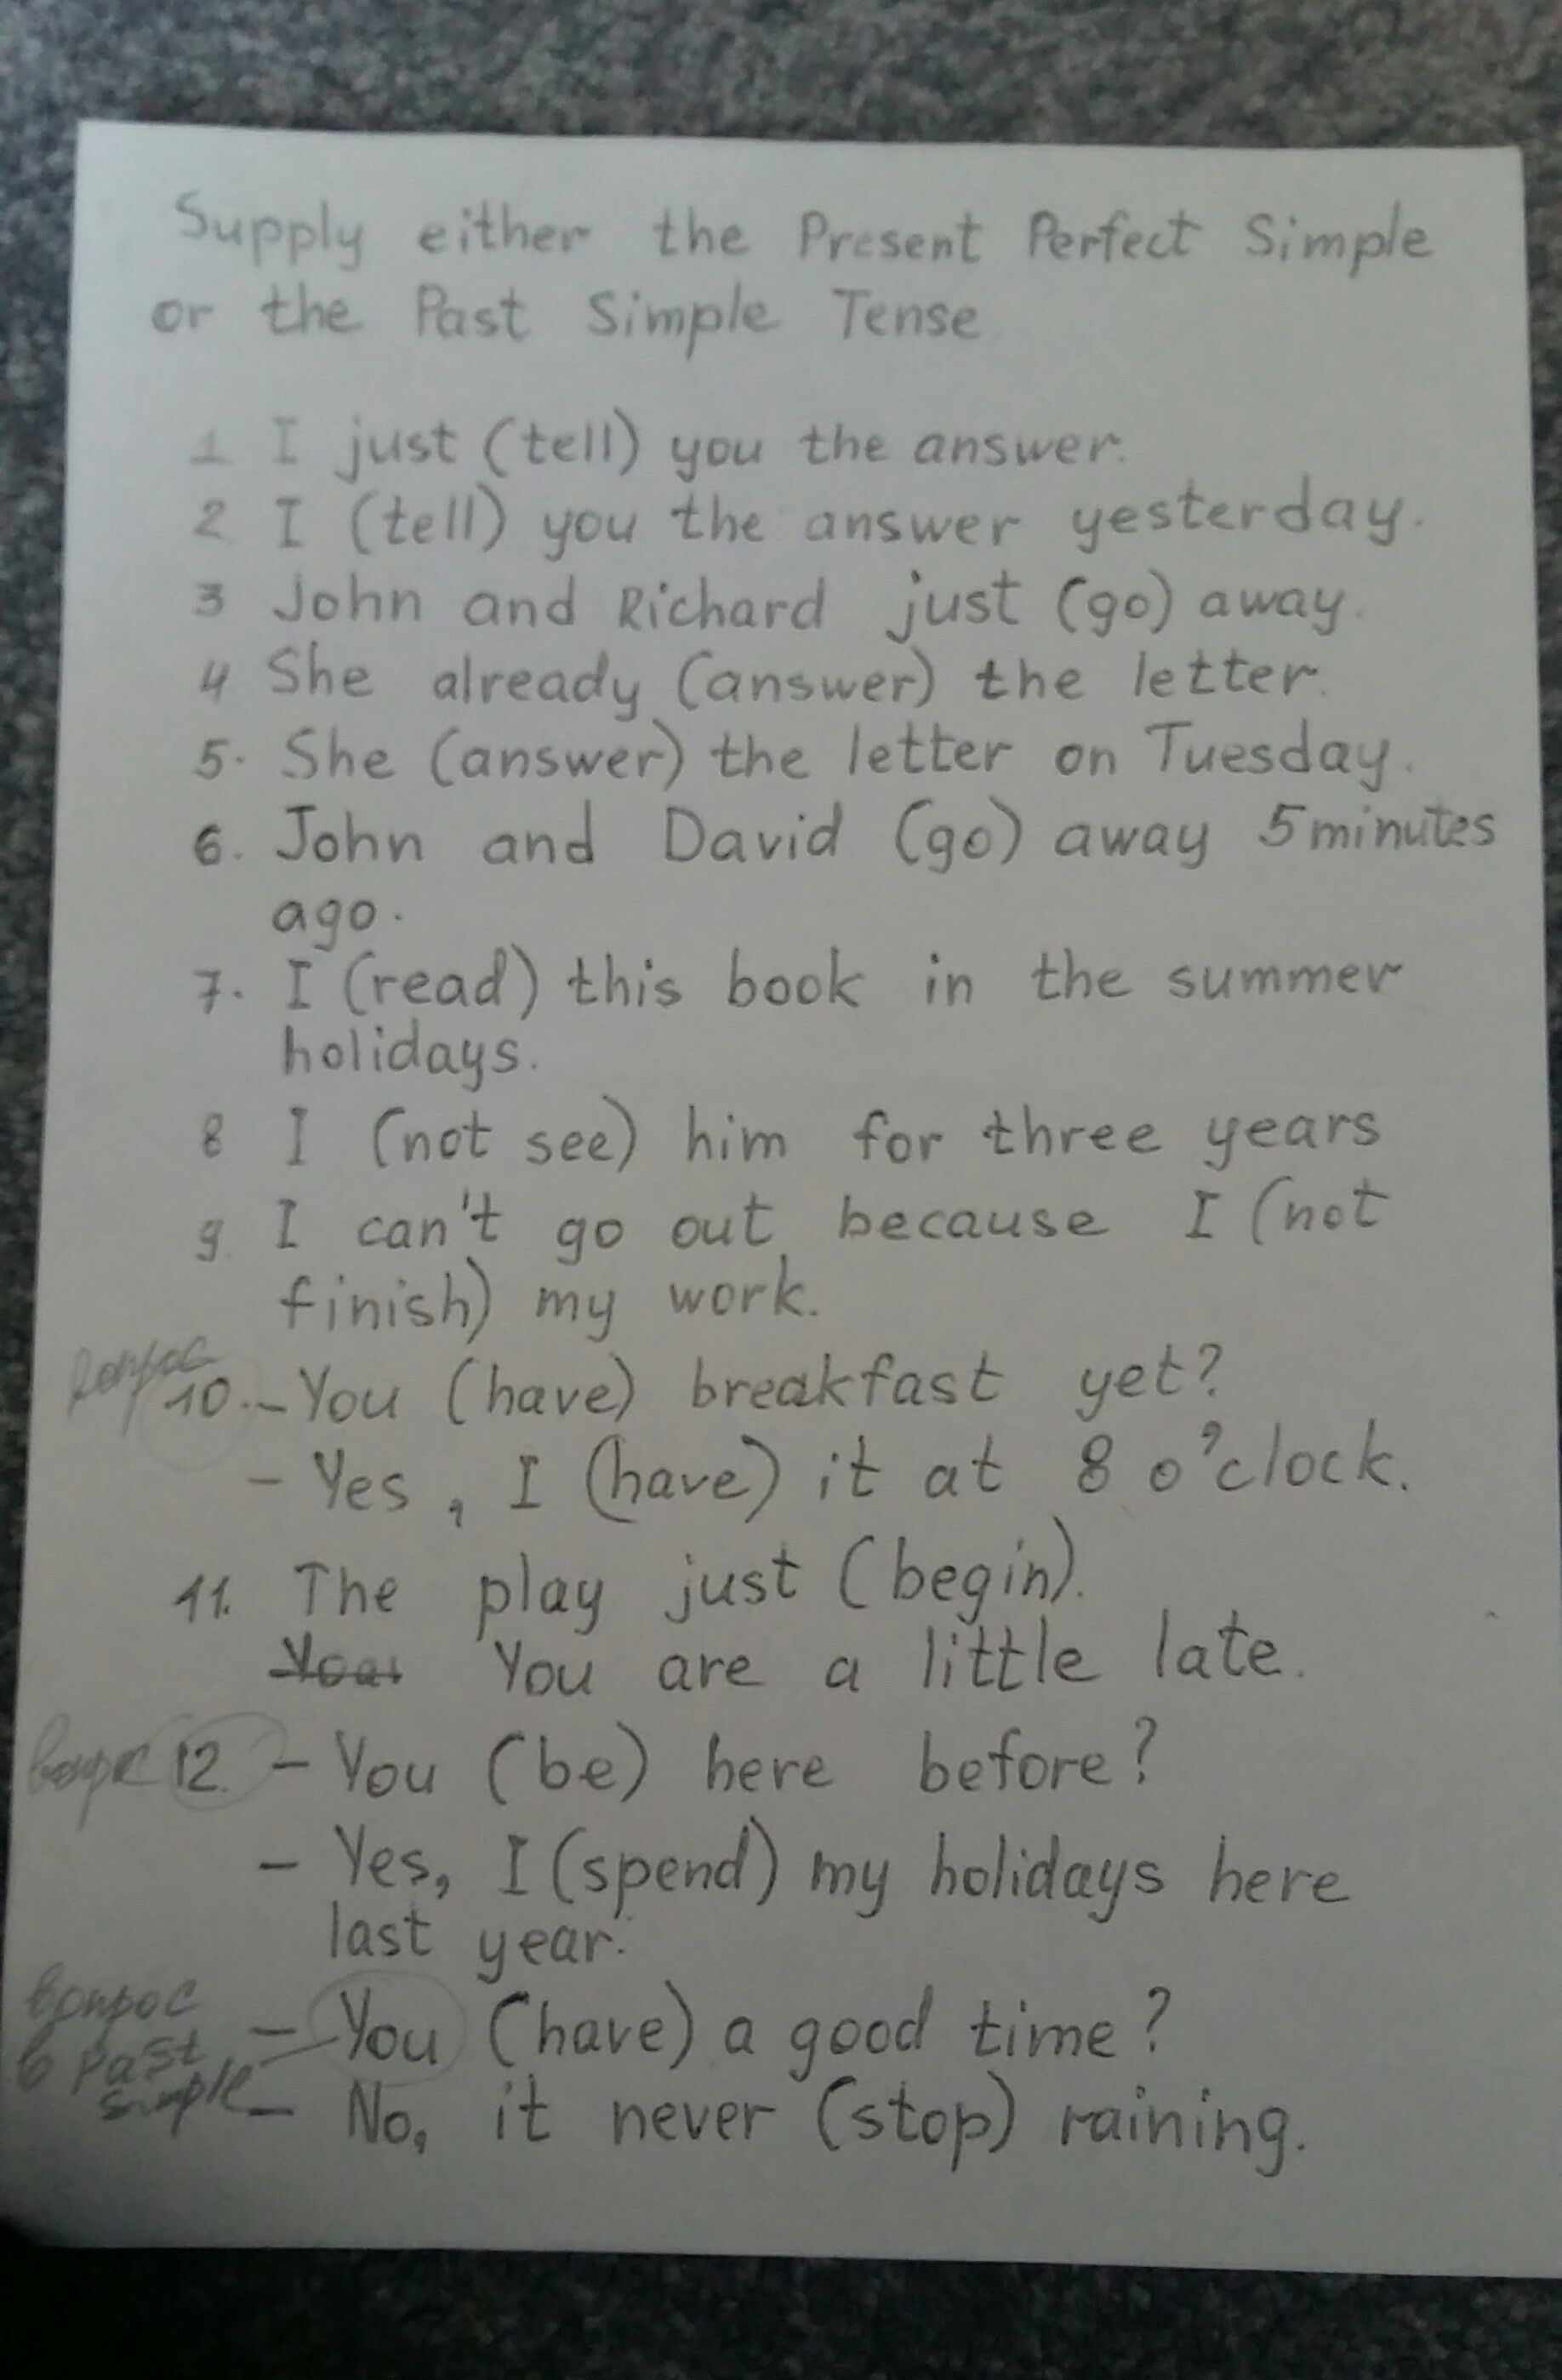 Supply either the Present Perfect Simple
or the Past Simple Tense
1 I just (tell) you the answer.
2 I (tell) you the answer yesterday.
3 John and Richard just (go) away.
4 She already (answer) the letter.
5. She (answer) the letter on Tuesday.
6. John and David (go) away 5 minutes
ago.
7. I (read) this book in the summer
holidays.
8 I (not see) him for three years
9. I can't go out because I (not
finish) my work.
вопрос
10. – You (have) breakfast yet?
– Yes, I (have) it at 8 o'clock.
11. The play just (begin).
You are a little late.
вопрос 12. – You (be) here before?
– Yes, I (spend) my holidays here
last year.
вопрос
в Past
simple
– You (have) a good time?
– No, it never (stop) raining.